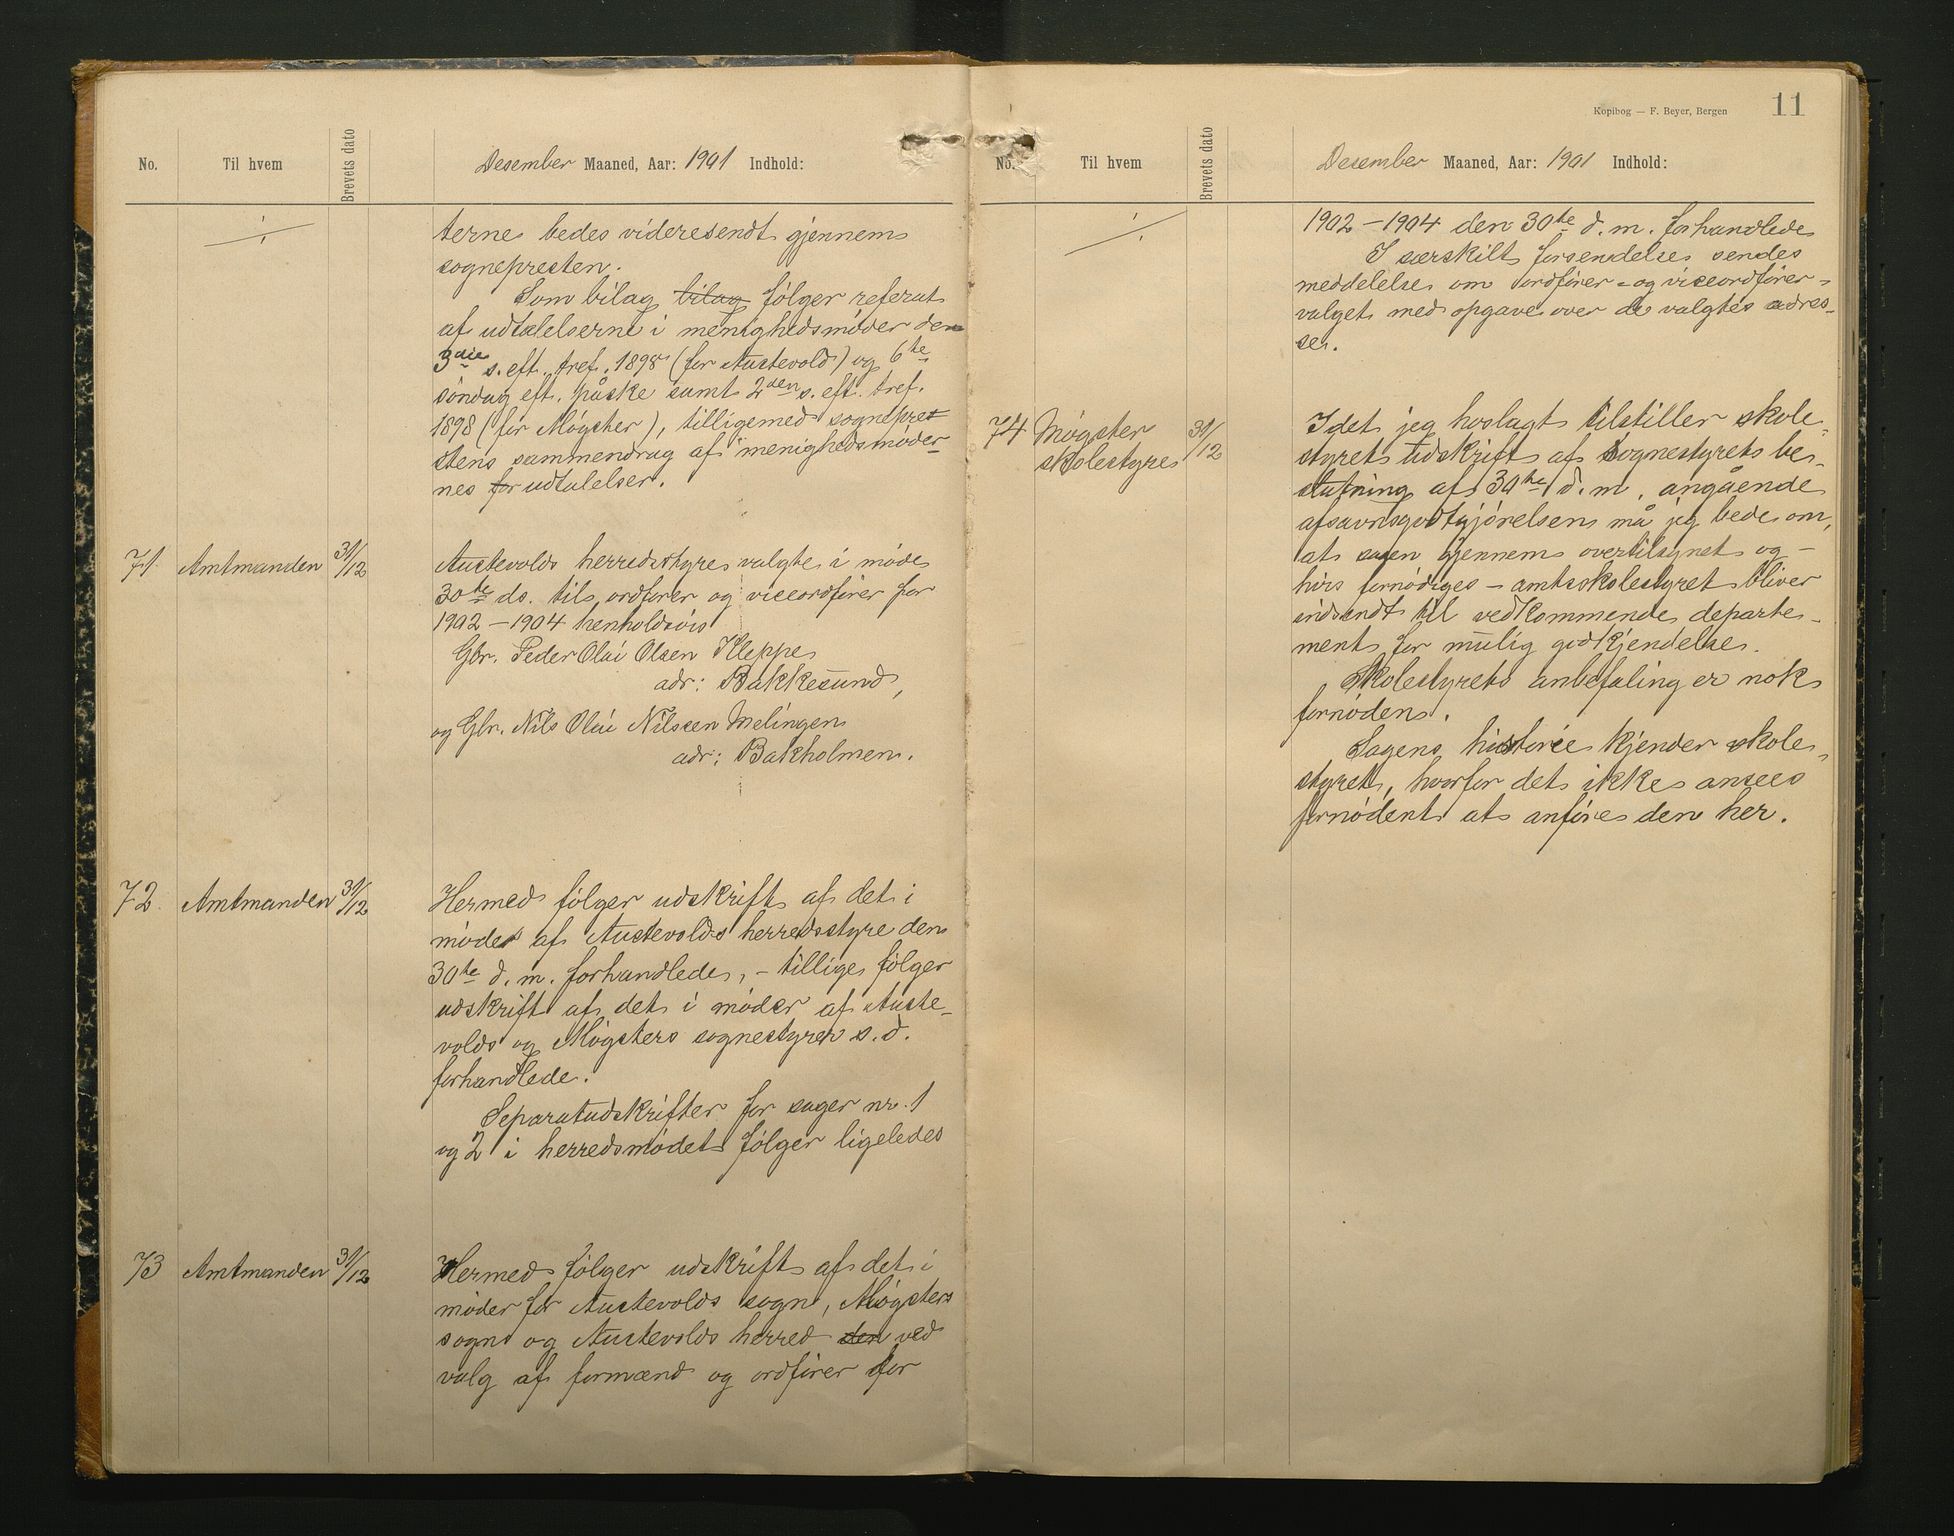 No. Til hvem Brevets dato Desember Maaned, Aar: 1901 Indhold:
terne bedes videresendt gjennem
sognepresten.
Som bilag bilag følger referat
af udtalelserne i menighedsmøder den
3die s. eft. tref. 1898 (for Austevold) og 6te
søndag eft. påske samt 2den s. eft. tref.
1898 (for Møgster), tilligemed sognepre-
stens sammendrag af menighedsmøder-
nes for udtalelser.
71. Amtmanden 31/12 Austevolds herredsstyre valgte i møde
30te ds. til ordfører og viceordfører for
1902 – 1904 henholdsvis
Gbr. Peder Olai Olsen Kleppe
adr: Bakkesund,
og Gbr. Nils Olai Nilssen Melingen
adr: Bakholmen.
72. Amtmanden 31/12 Hermed følger udskrift af det i
møde af Austevolds herredsstyre den
30te d. m. forhandlede, – tillige følger
udskrift af det i møder af Auste-
volds og Møgsters sognestyrer s. d.
forhandlede.
Separatudskrifter for sager nr. 1
og 2 i herredsmødet følger ligeledes
73 Amtmanden 31/12 Hermed følger udskrift af det i
møder for Austevolds sogn, Møgsters
sogn og Austevolds herred den ved
valg af formænd og ordfører for
Kopibog — F. Beyer, Bergen 11
No. Til hvem Brevets dato Desember Maaned, Aar: 1901 Indhold:
1902 – 1904 den 30te d. m. forhandlede
I særskilt forsendelse sendes
meddelelse om ordfører- og viceordfører-
valget med opgave over de valgtes adres-
se.
74 Møgster skolestyre 31/12 Idet jeg hoslagt tilstiller skole-
styret udskrift af sognestyrets be-
slutning af 30te d. m. angående
afsavnsgodtgjørelsen må jeg bede om,
at sagen gjennem overtilsynet og –
hvis fornødiges – amtsskolestyret bliver
indsendt til vedkommende departe-
ment for mulig godkjendelse.
Skolestyrets anbefaling er nok
fornøden.
Sagens historie kjender skole-
styret, hvorfor det ikke ansees
fornødent at anføre den her.